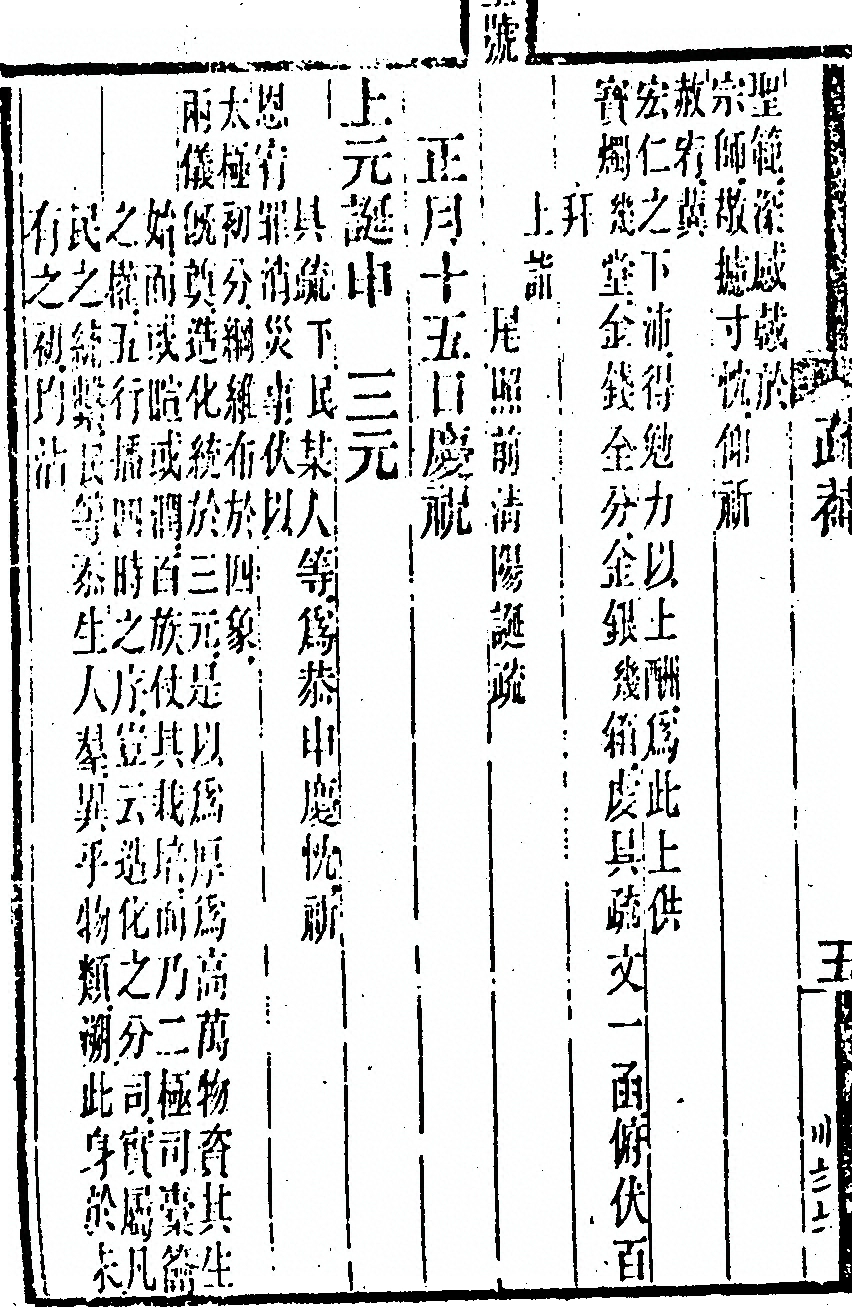 號
疏補
五
聖範深感戴於
宗師敬攄寸忱仰祈
赦宥冀
宏仁之下沛得勉力以上酬爲此上供
寶燭幾堂金錢全分金銀幾箱虔具疏文一函俯伏百
拜
上詣
尾照前清陽誕疏
正月十五日慶祝
上元誕申 三元
具疏下民某人等爲恭申慶忱祈
恩宥罪消災事伏以
太極初分綱維布於四象
兩儀既奠造化統於三元是以爲厚爲高萬物資其生
始而或暄或潤百族仗其栽培而乃二極司槖籥
之權五行播四時之序豈云造化之分司實屬凡
民之統繫民等忝生人羣異乎物類溯此身於未
有之初均沾